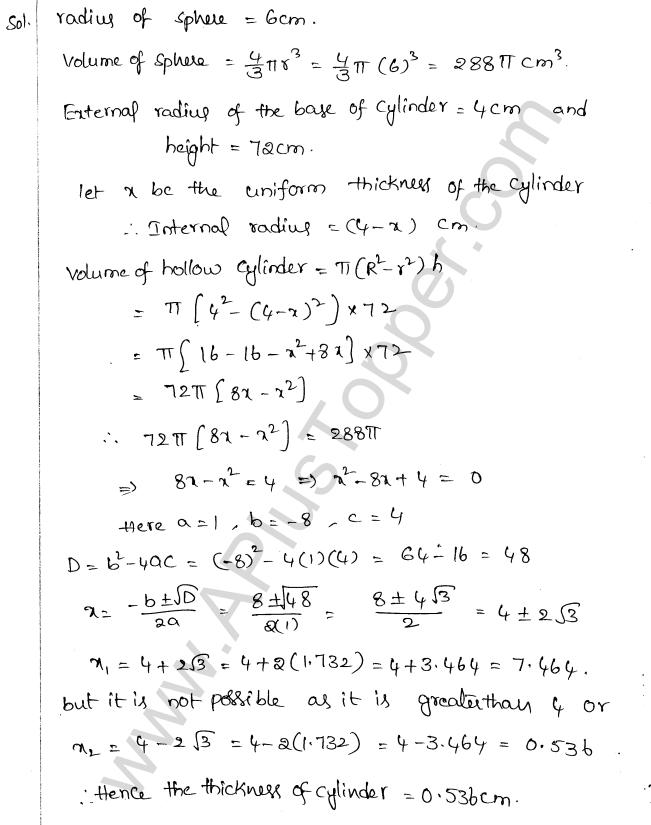 Sol. radius of sphere = 6cm.
Volume of sphere = 4/3 πr³ = 4/3 π (6)³ = 288π cm³.
External radius of the base of cylinder = 4cm and
height = 72cm.
let x be the uniform thickness of the cylinder
∴ Internal radius = (4-x) cm.
Volume of hollow cylinder = π(R²-r²)h
= π[4²-(4-x)²]×72
= π[16-16-x²+8x]×72
= 72π[8x-x²]
∴ 72π[8x-x²] = 288π
⇒ 8x-x² = 4 ⇒ x²-8x+4 = 0
Here a=1, b=-8, c=4
D = b²-4ac = (-8)²-4(1)(4) = 64-16 = 48
x = (-b±√D)/2a = (8±√48)/2(1) = (8±4√3)/2 = 4±2√3
x₁ = 4+2√3 = 4+2(1.732) = 4+3.464 = 7.464.
but it is not possible as it is greaterthan 4 or
x₂ = 4-2√3 = 4-2(1.732) = 4-3.464 = 0.536.
∴ Hence the thickness of cylinder = 0.536cm.
www.APlusTopper.com